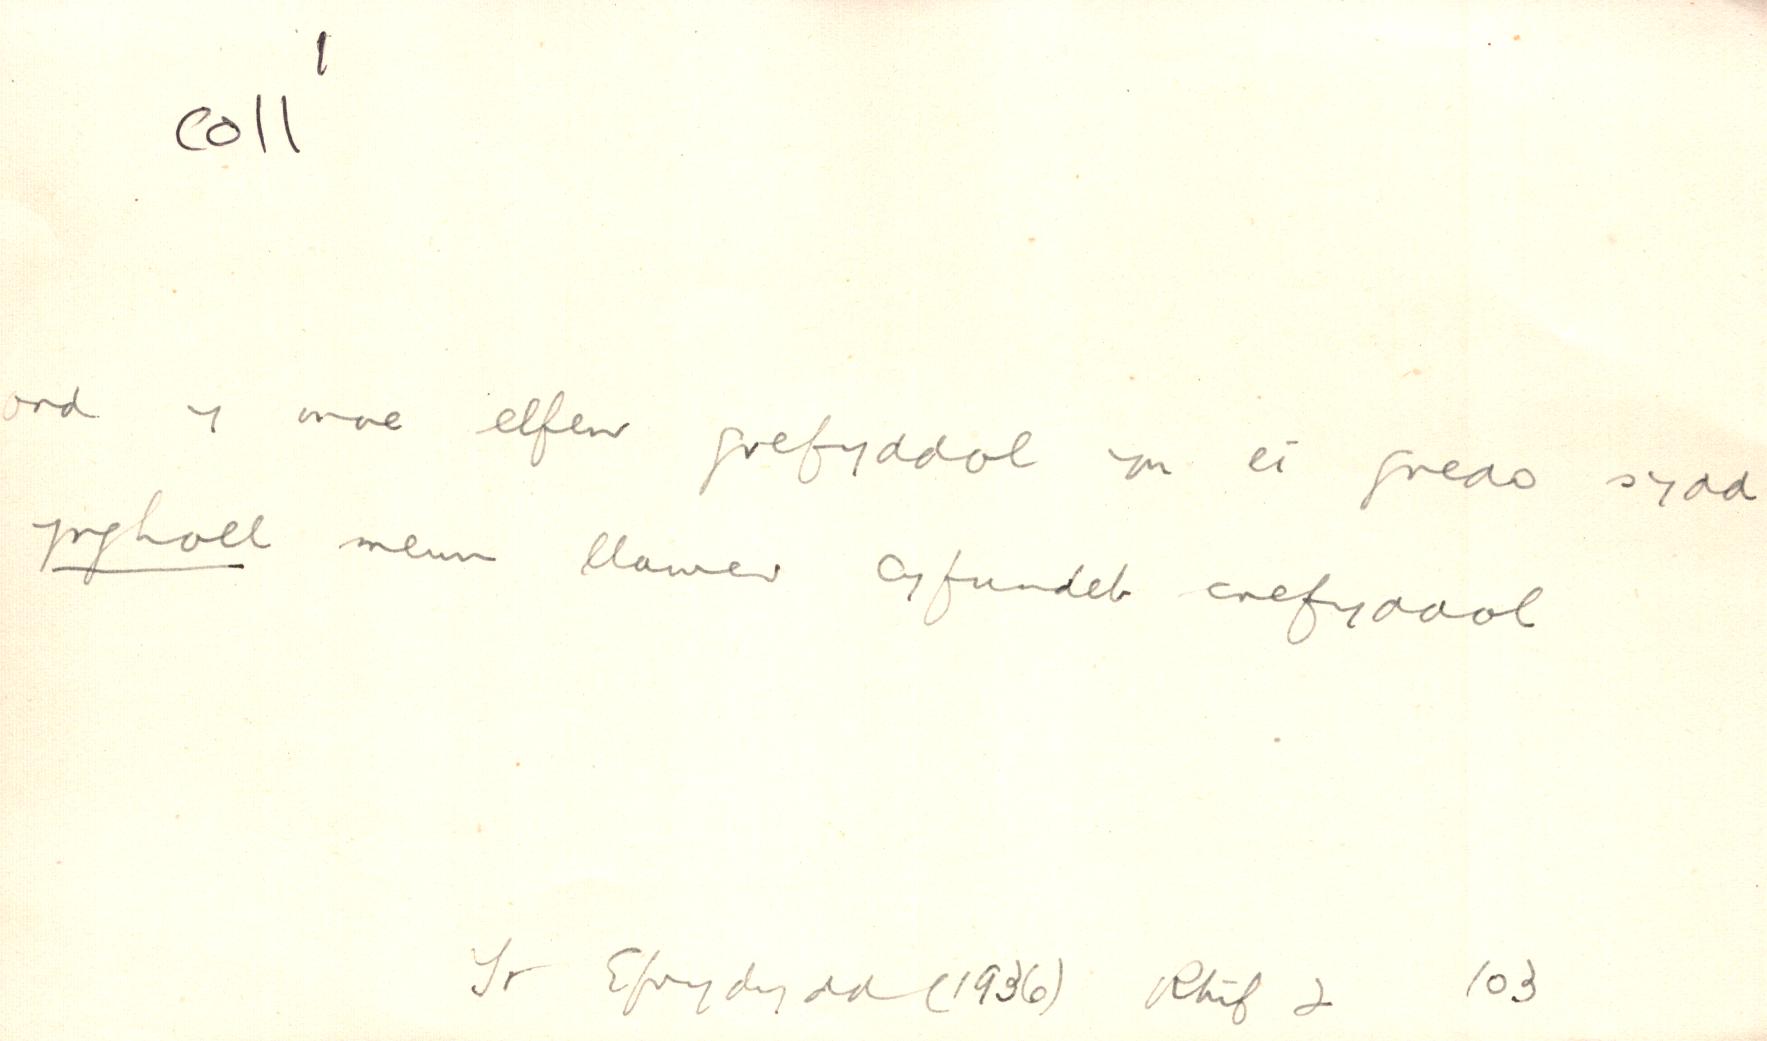 coll¹
ond y mae elfen grefyddol yn ei gredo sydd
ynghall mewn llawer cyfundeb crefyddol
Yr Efrydydd (1936) Rhif 2 103